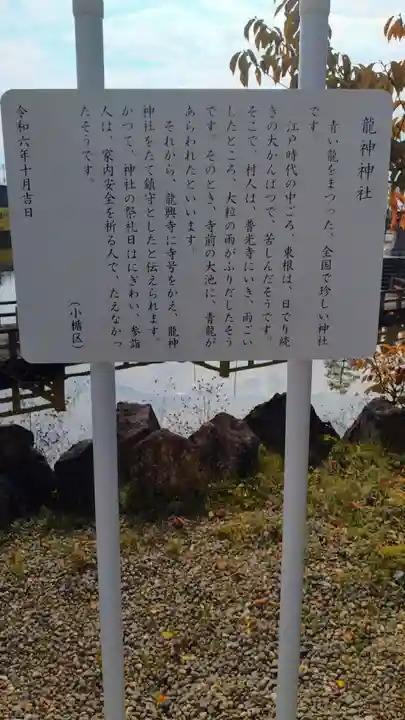 龍神神社
青い龍をまつった、全国で珍しい神社
です。
江戸時代の中ごろ、東根は、日でり続
きの大かんばつで、苦しんだそうです。
そこで、村人は、普光寺にいき、雨ごい
したところ、大粒の雨がふりだしたそう
です。そのとき、寺前の大池に、青龍が
あらわれたといいます。
それから、龍興寺に寺号をかえ、龍神
神社をたて鎮守としたと伝えられます。
かつて、神社の祭礼日はにぎわい、参詣
人は、家内安全を祈る人で、たえなかっ
たそうです。
(小楯区)
令和六年十月吉日